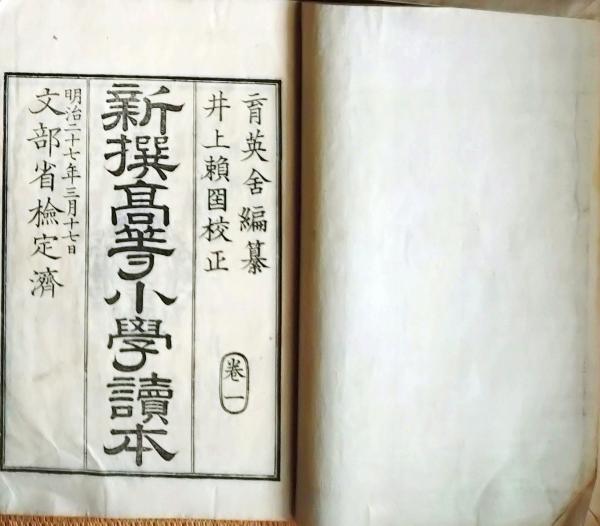 育英舍編纂
井上賴囶校正
卷一
新撰高等小學讀本
明治二十七年三月十七日
文部省檢定濟